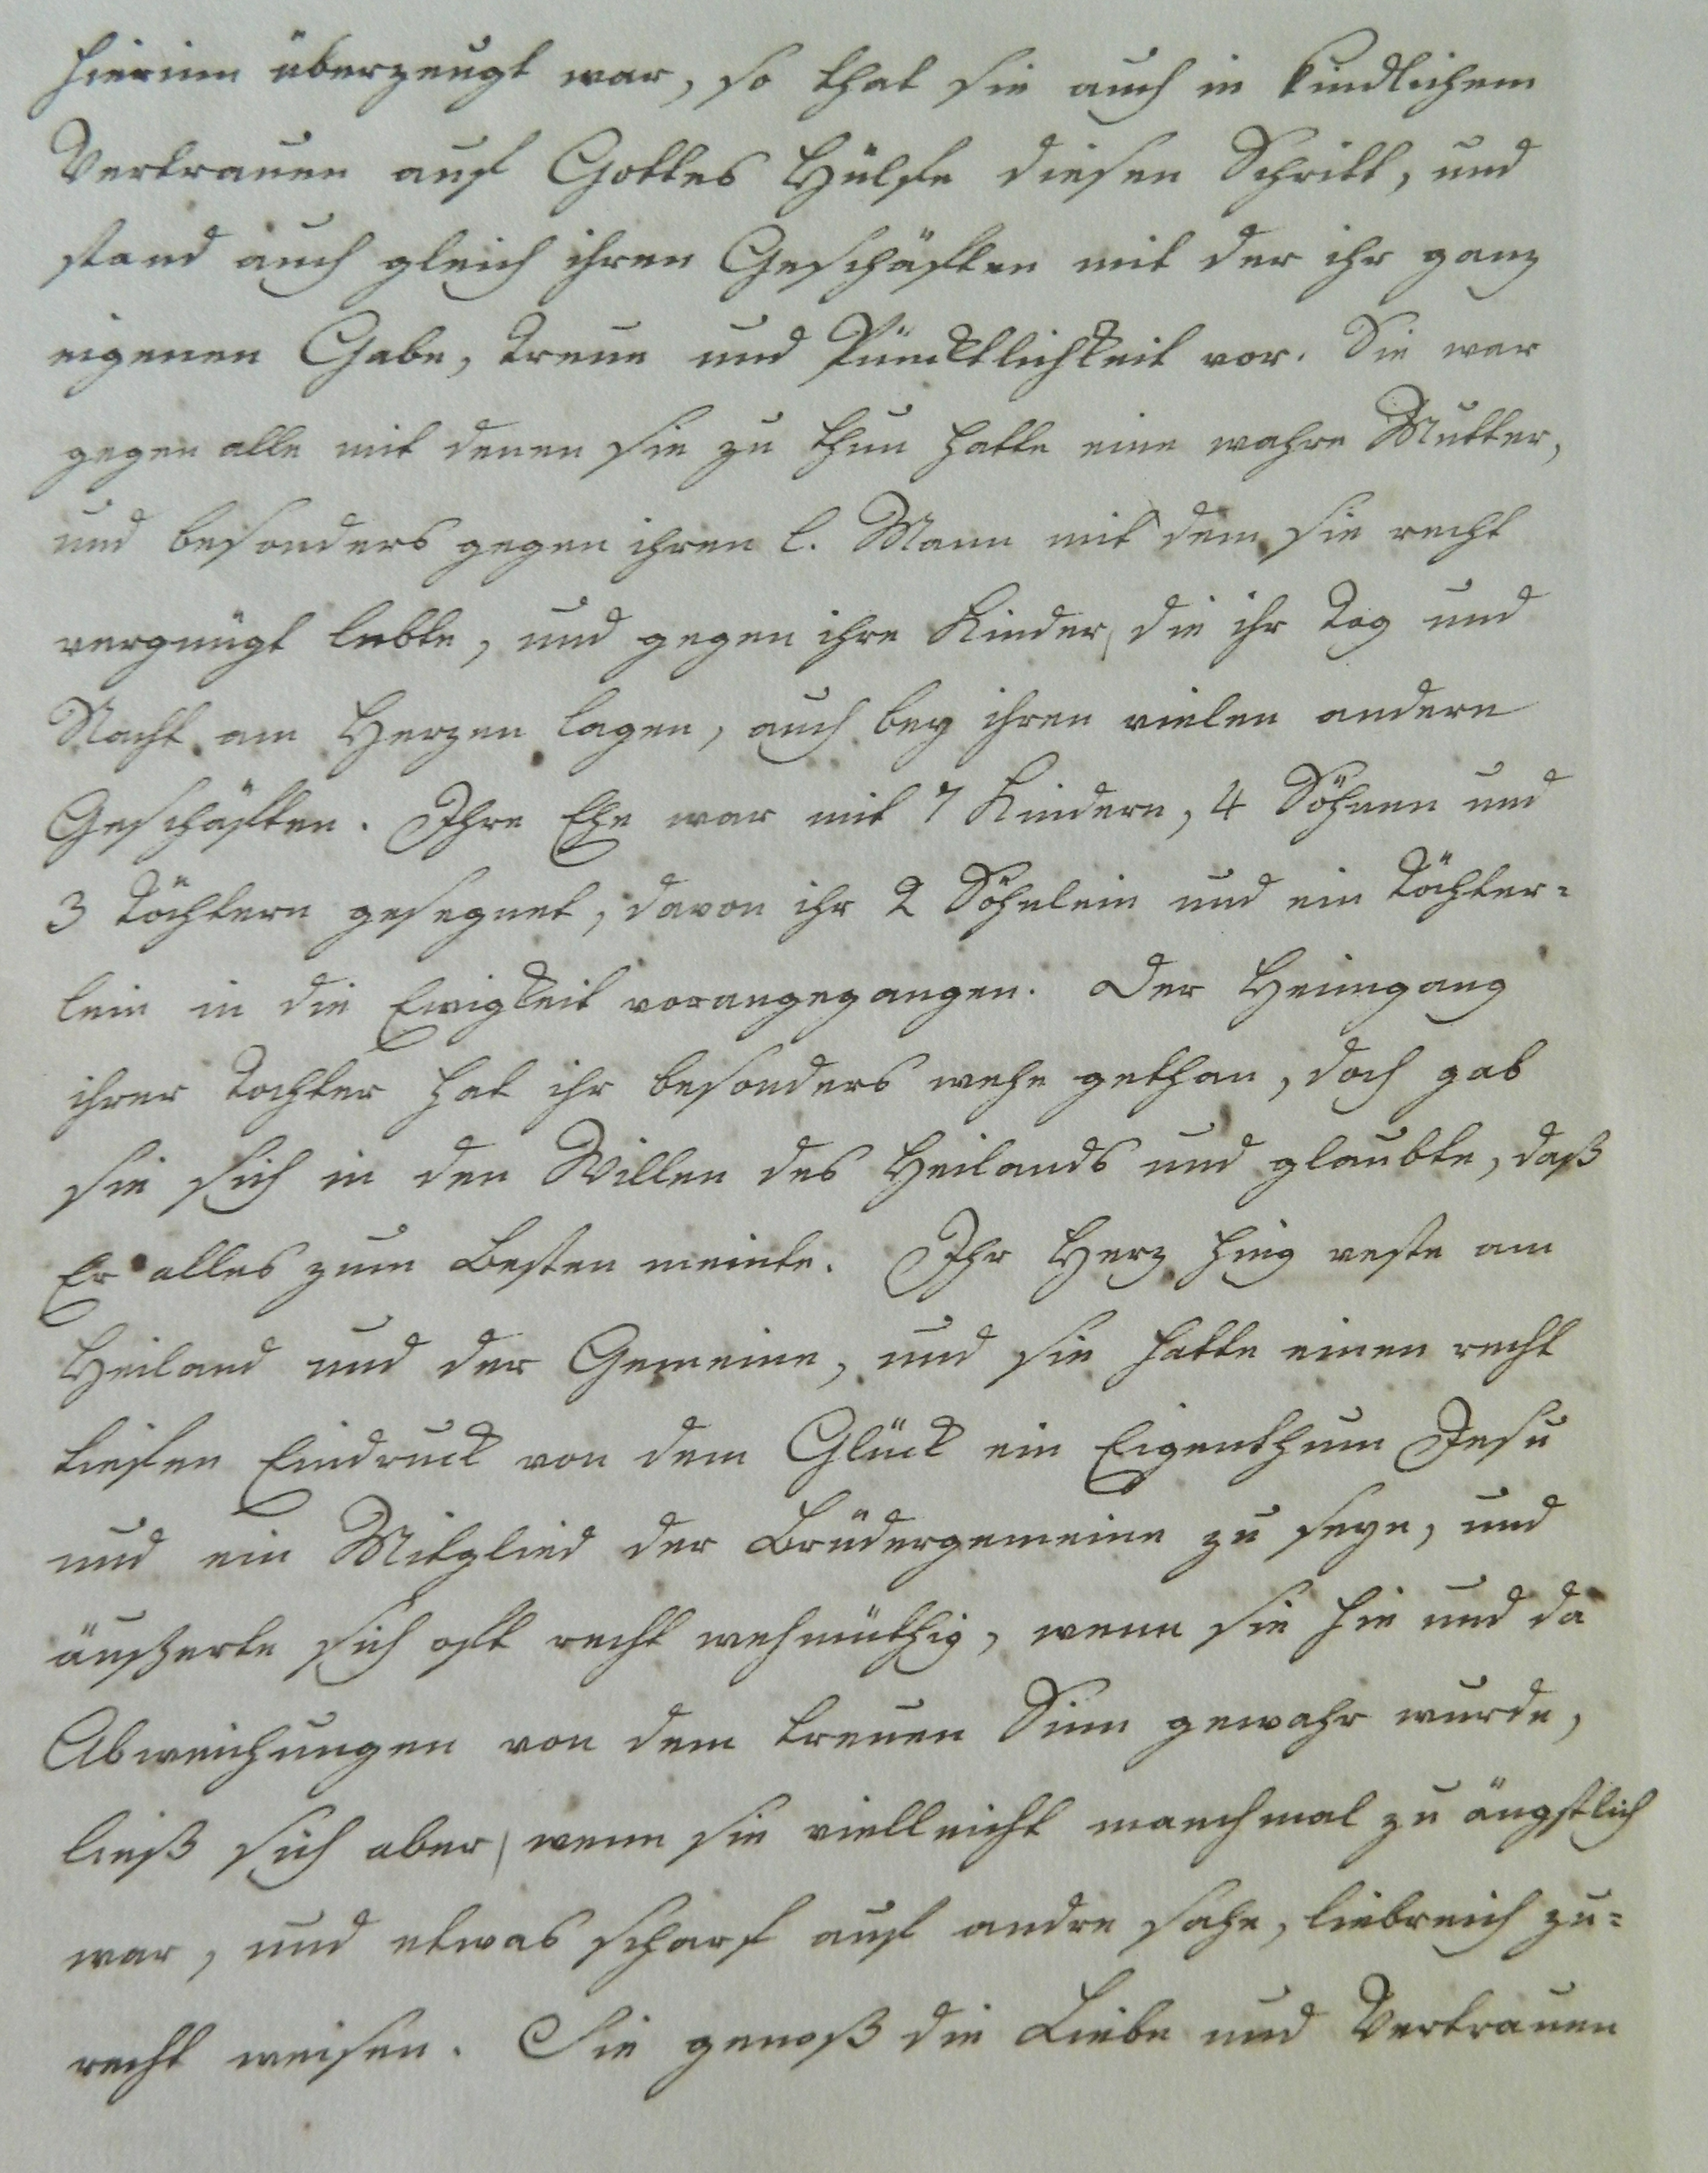 hierinn überzeugt war, so that sie auch in kindlichem
Vertrauen auf Gottes Hülfe diesen Schritt, und
stand auch gleich ihren Geschäften mit der ihr ganz
eigenen Gabe, Treue und Pünctlichkeit vor. Sie war
gegen alle mit denen sie zu thun hatte eine wahre Mutter,
und besonders gegen ihren l. Mann mit dem sie recht
vergnügt lebte, und gegen ihre Kinder, die ihr Tag und
Nacht am Herzen lagen, auch bey ihren vielen andern
Geschäften. Ihre Ehe war mit 7 Kindern, 4 Söhnen und
3 Töchtern gesegnet, davon ihr 2 Söhnlein und ein Töchter-
lein in die Ewigkeit vorangegangen. Der Heimgang
ihrer Tochter hat ihr besonders wehe gethan, doch gab
sie sich in den Willen des Heilands und glaubte, daß
Er alles zum Besten meinte. Ihr Herz hing veste am
Heiland und der Gemeine, und sie hatte einen recht
tiefen Eindruck von dem Glück ein Eigenthum Jesu
und ein Mitglied der Brüdergemeine zu seyn, und
äußerte sich oft recht wehmüthig, wenn sie hie und da
Abweichungen von dem treuen Sinn gewahr wurde,
ließ sich aber, wenn sie vielleicht manchmal zu ängstlich
war, und etwas scharf auf andre sahe, liebreich zu-
recht weisen. Sie genoß die Liebe und Vertrauen